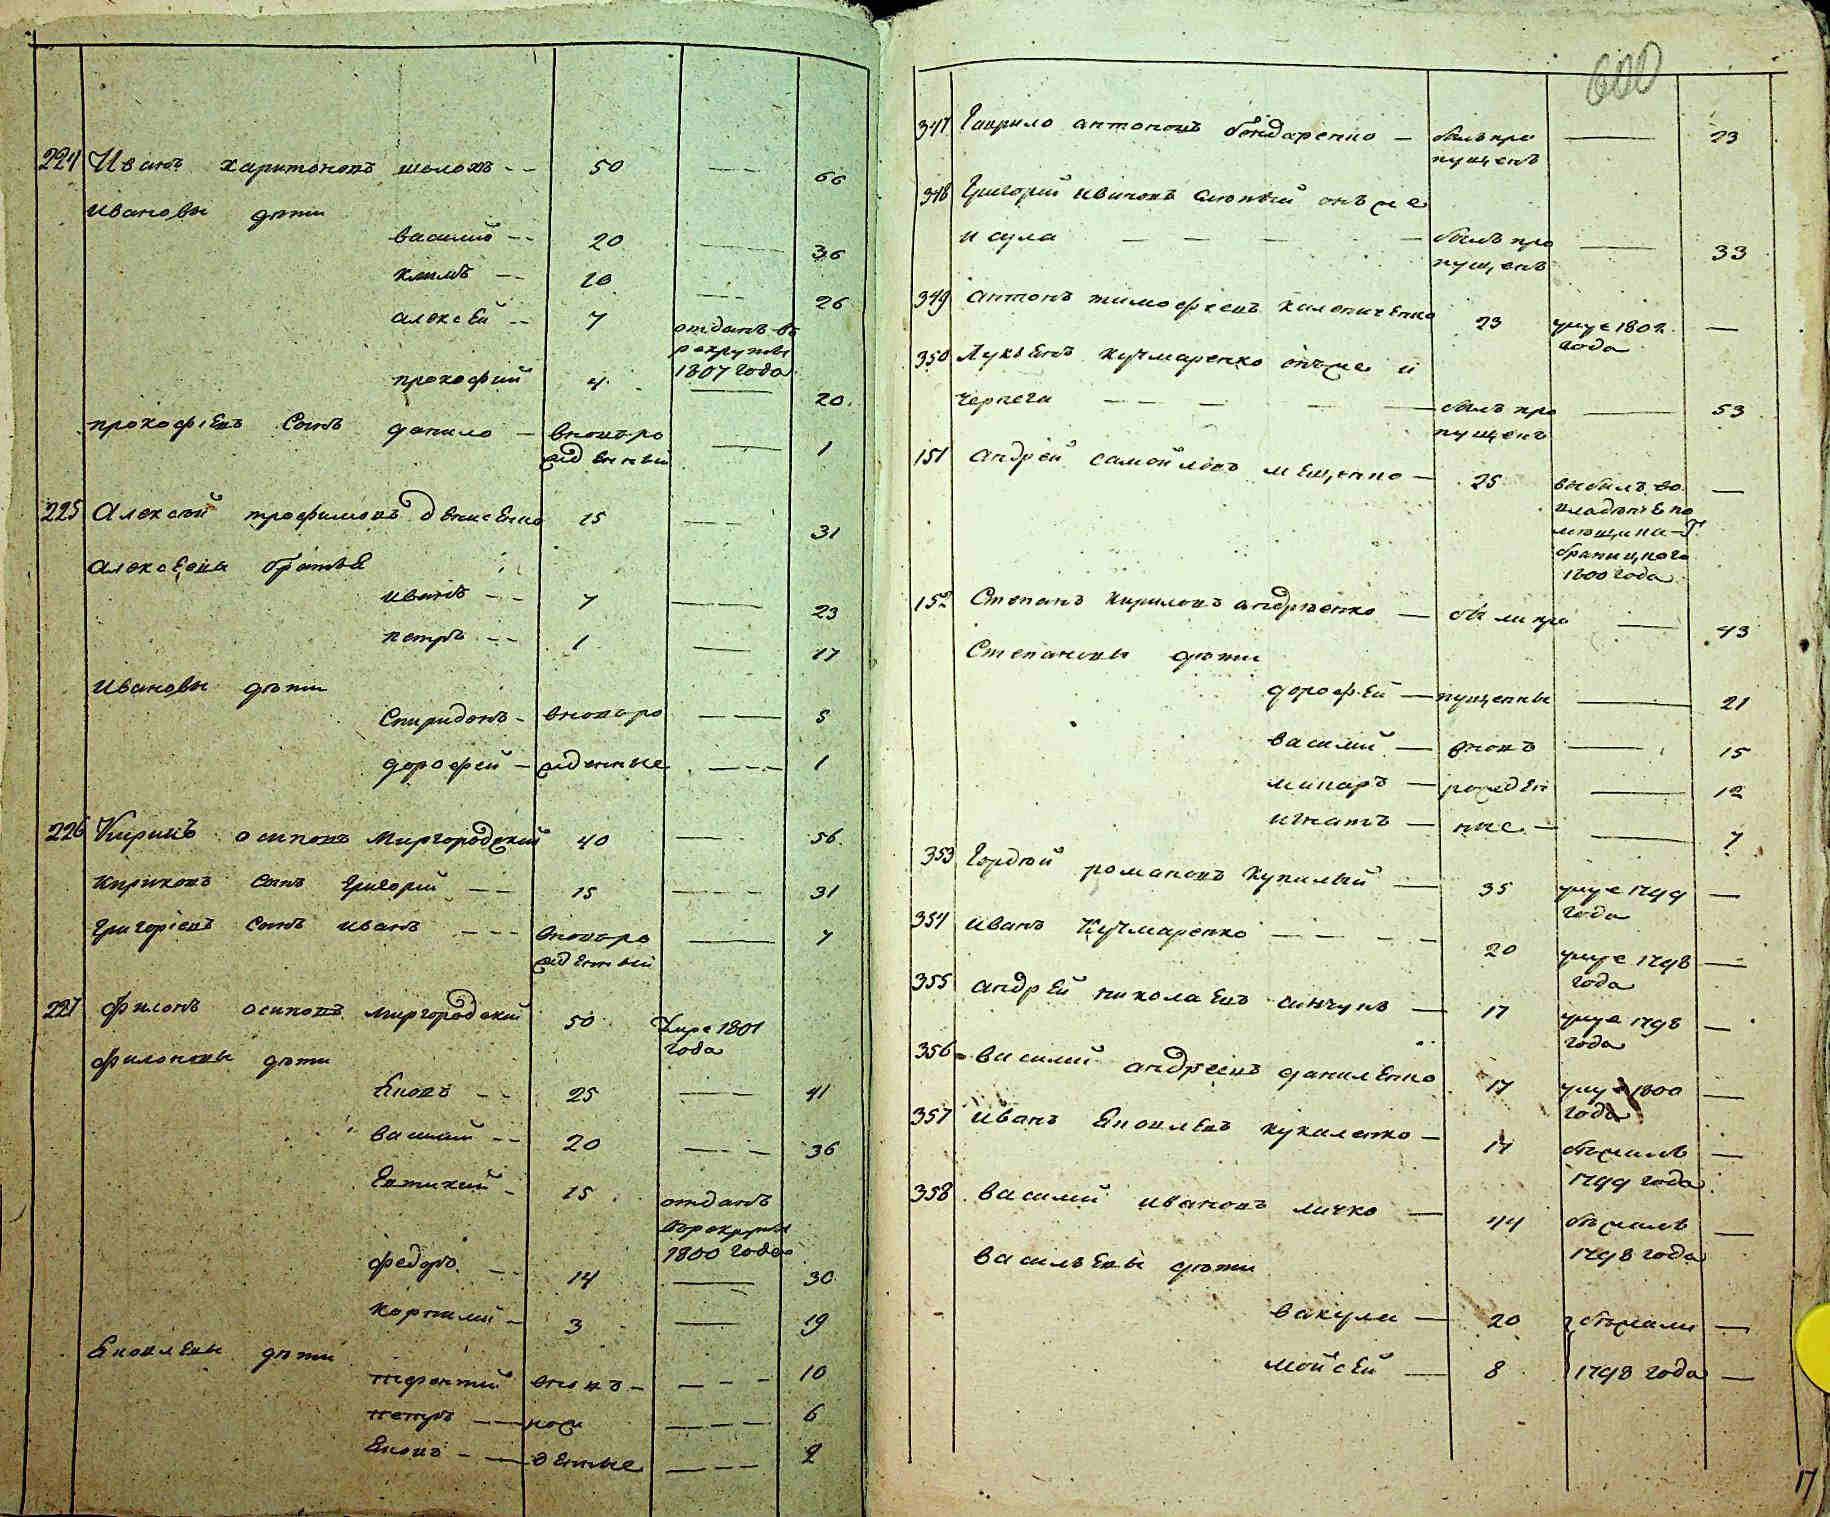 224 Иванъ Харитоновъ шолохъ -- 50 --- 66
Ивановы дѣти
василий -- 20 --- 36
климъ -- 10 --- 26
алексѣй -- 7 отданъ въ
рекруты
1807 года
прокофий 4 — 20
прокофіевъ сынъ данило — вновь ро — 1
жденный
225 Алексѣй трофимовъ денисенко 15 --- 31
алексѣева братья
иванъ -- 7 — 23
петръ -- 1 — 17
Ивановы дѣти
Спиридонъ - вновь ро — 5
дорофей - жденные --- 1
226 Кирикъ осиповъ Миргородский 40 — 56
Кириковъ сынъ Григорий -- 15 --- 31
Григоріевъ сынъ иванъ --- вновь ро — 7
жденный
227 филонъ осиповъ миргородский 50 умре 1801
года
филоновы дѣти
Яковъ -- 25 --- 41
василий -- 20 --- 36
Евтихий - 15 отданъ
в рекруты
1800 года
федоръ -- 14 — 30
корнилий - 3 — 19
Яковлевы дѣти
терентий вновъ - --- 10
петръ -- рож --- 6
Яковъ -- денные --- 2
600
347 Гаврило антоновъ бондаренко — былъ про — 23
пущенъ
348 Григорий ивановъ слюпый онъ же
и сула ---- былъ про — 33
пущенъ
349 антонъ тимофеевъ калениченко 23 умре 1802 —
года
350 Лукьянъ кучмаренко онъ же и
черпега ---- былъ про — 53
пущенъ
151 андрей самойловъ мищенко — 25 выбылъ во —
владѣніе по
мещика Г.
браницкого
1800 года
152 Степанъ кириловъ андрѣенко — были про — 43
Степановы дѣти
дорофей — пущенны — 21
василий — вновъ — 15
макаръ — рожден — 12
игнатъ — ные — — 7
353 Гордѣй романовъ Купилый — 35 умре 1799 —
года
354 иванъ Кучмаренко ---- 20 умре 1798 —
года
355 андрѣй николаевъ синчукъ — 17 умре 1798 —
года
356 василий андреевъ даниленко 17 умре 1800 —
года
357 иванъ Яковлевъ кукаленко — 17 бѣжалъ —
1799 года
358 василий ивановъ личко — 44 бѣжалъ —
1798 года
васильевы дѣти
вакула — 20 бѣжали —
мойсей — 8 1798 года —
17